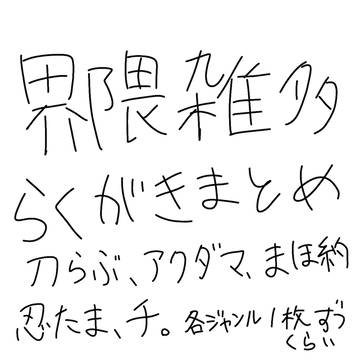 界隈雑多
らくがきまとめ
刀らぶ、アクダマ、まほ約
忍たま、チ。各ジャンル1枚ずつ
くらい